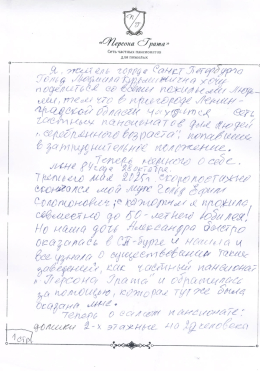 «Персона Грата»
Сеть частных пансионатов
для пожилых
Я житель города Санкт Петербурга
Голд Людмила хочу
поделиться со всеми пожилыми людь-
ми, тем что в пригороде Ленин-
градской области есть
частный пансионат для людей
"серебренного возраста", попавших
в затруднительное положение.
Теперь немного о себе.
Мне 84 года
Третьего мая скоропостижно
скончался мой муж Голд Ефим
Соломонович, с которым я прожила
совместно до 60-летнего юбилея.
Но наша дочь Александра быстро
оказалась в СП-бурге и нашла и
все узнала о существовании таких
заведений, как частный пансионат
"Персона Грата" и обратилась
за помощью, которая тут же была
оказана мне.
Теперь о самом пансионате:
домики 2-х этажные на человека
1 стр